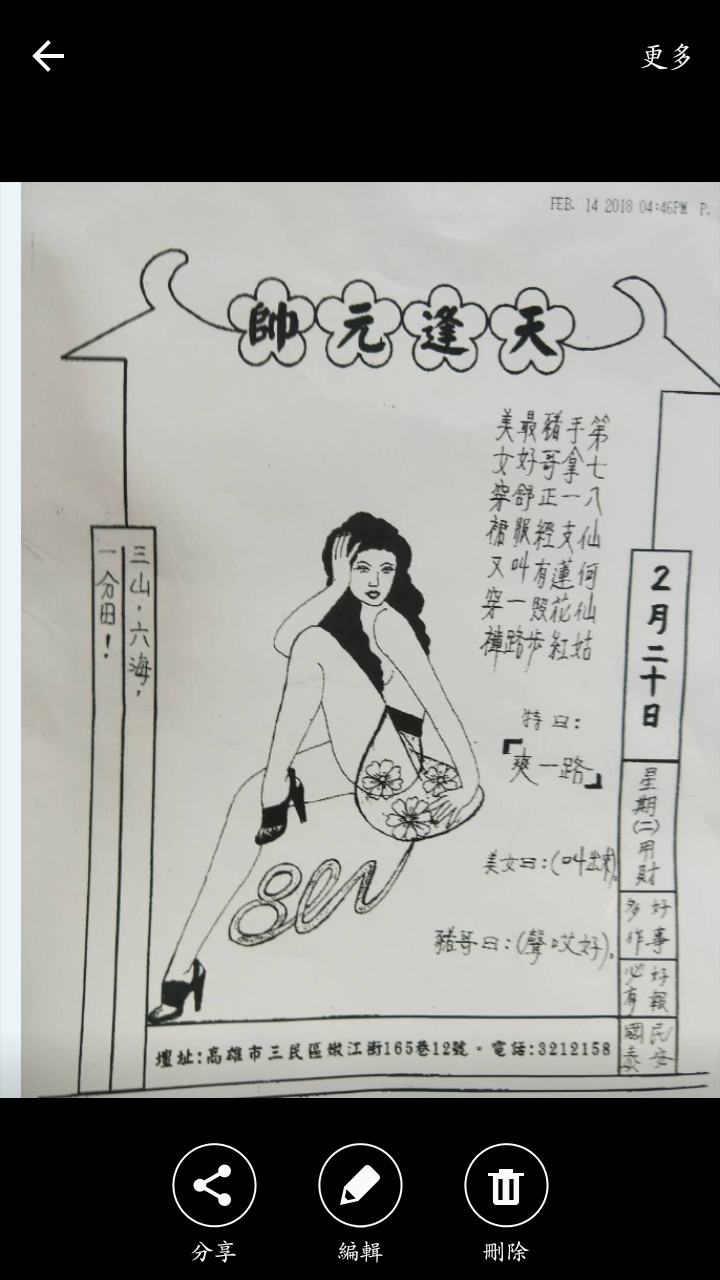 更多
FEB. 14 2018 04:46PM P.
天逢元帥
第七八仙何仙姑
手拿一支蓮花紅
豬哥正經有照步
最好舒服叫一路
美女穿裙又穿褲
特曰：
「爽一路」
美女曰：(叫出來)。
豬哥曰：(聲哎好)。
2月二十日
星期(二)用財
好事
多作
好報
必有
民安
國泰
三山，六海，
一分田！
壇址:高雄市三民區嫩江街165巷12號。電話:3212158
分享
編輯
刪除